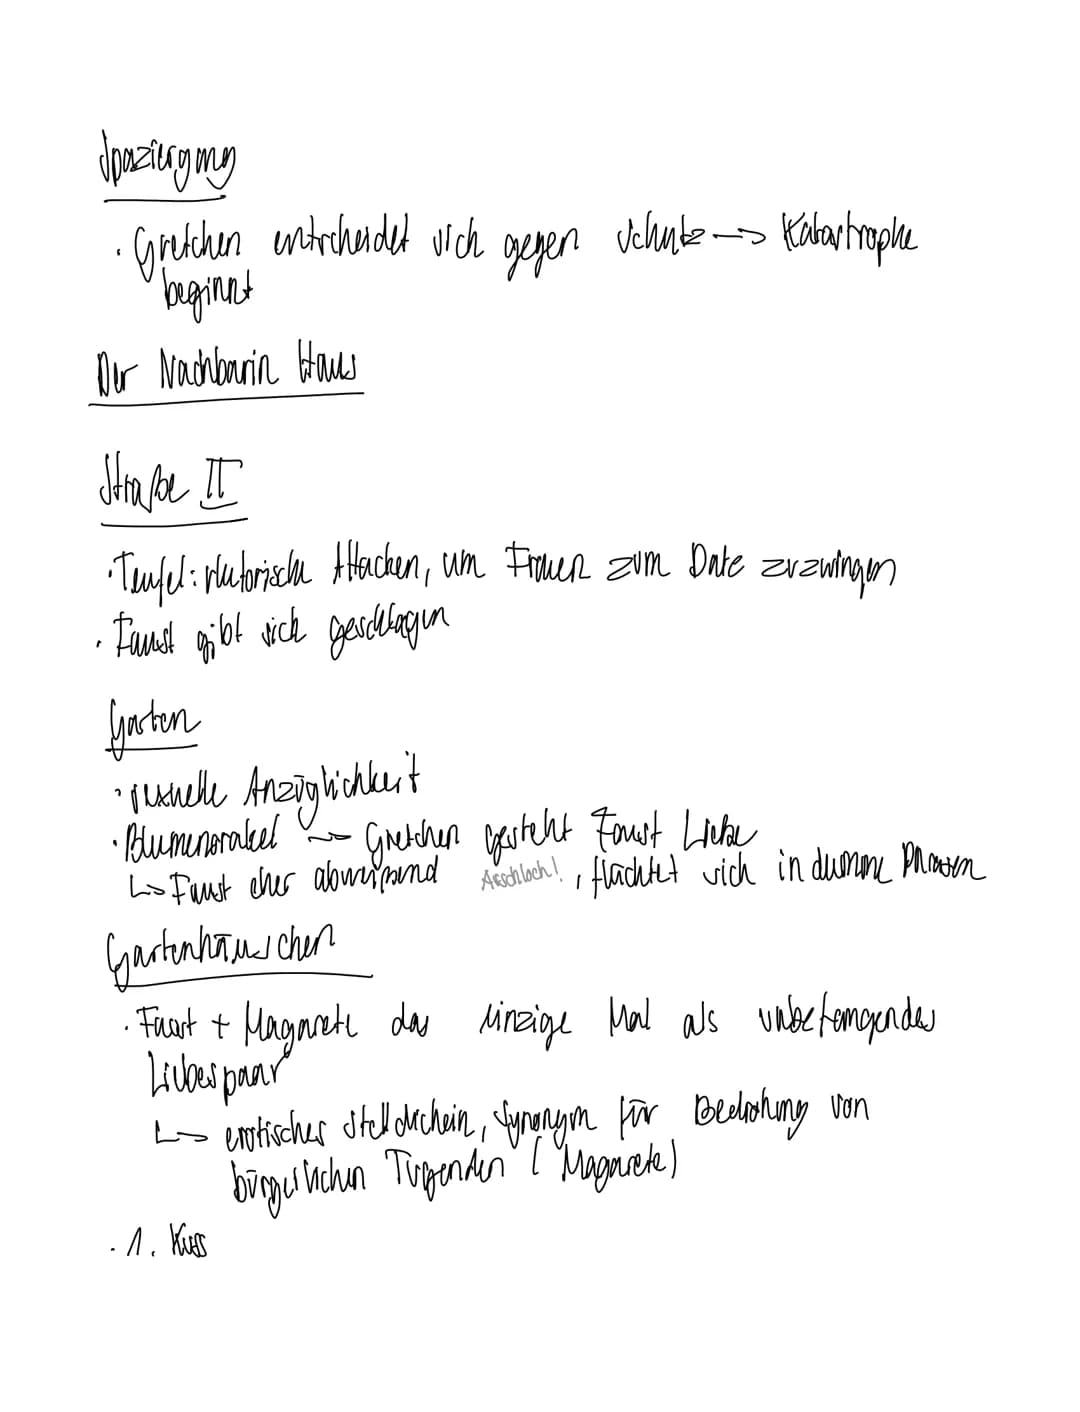 Spaziergang
· Gretchen entscheidet sich gegen Schutz → Katastrophe
beginnt
Der Nachbarin Haus
Straße II
· Teufel: rhetorische Attacken, um Frauen zum Date zuzwingen
· Faust gibt sich geschlagen
Garten
· sexuelle Anzüglichkeit
· Blumenorakel → Gretchen gesteht Faust Liebe
↳ Faust eher abweisend Arschloch!, flüchtet sich in dumme Phrasen
Gartenhäuschen
· Faust + Magarete das einzige Mal als unbefangendes
Liebespaar
↳ erotisches Stelldichein, Synonym für Bedrohung von
bürgerlichen Tugenden (Magarete)
· 1. Kuss